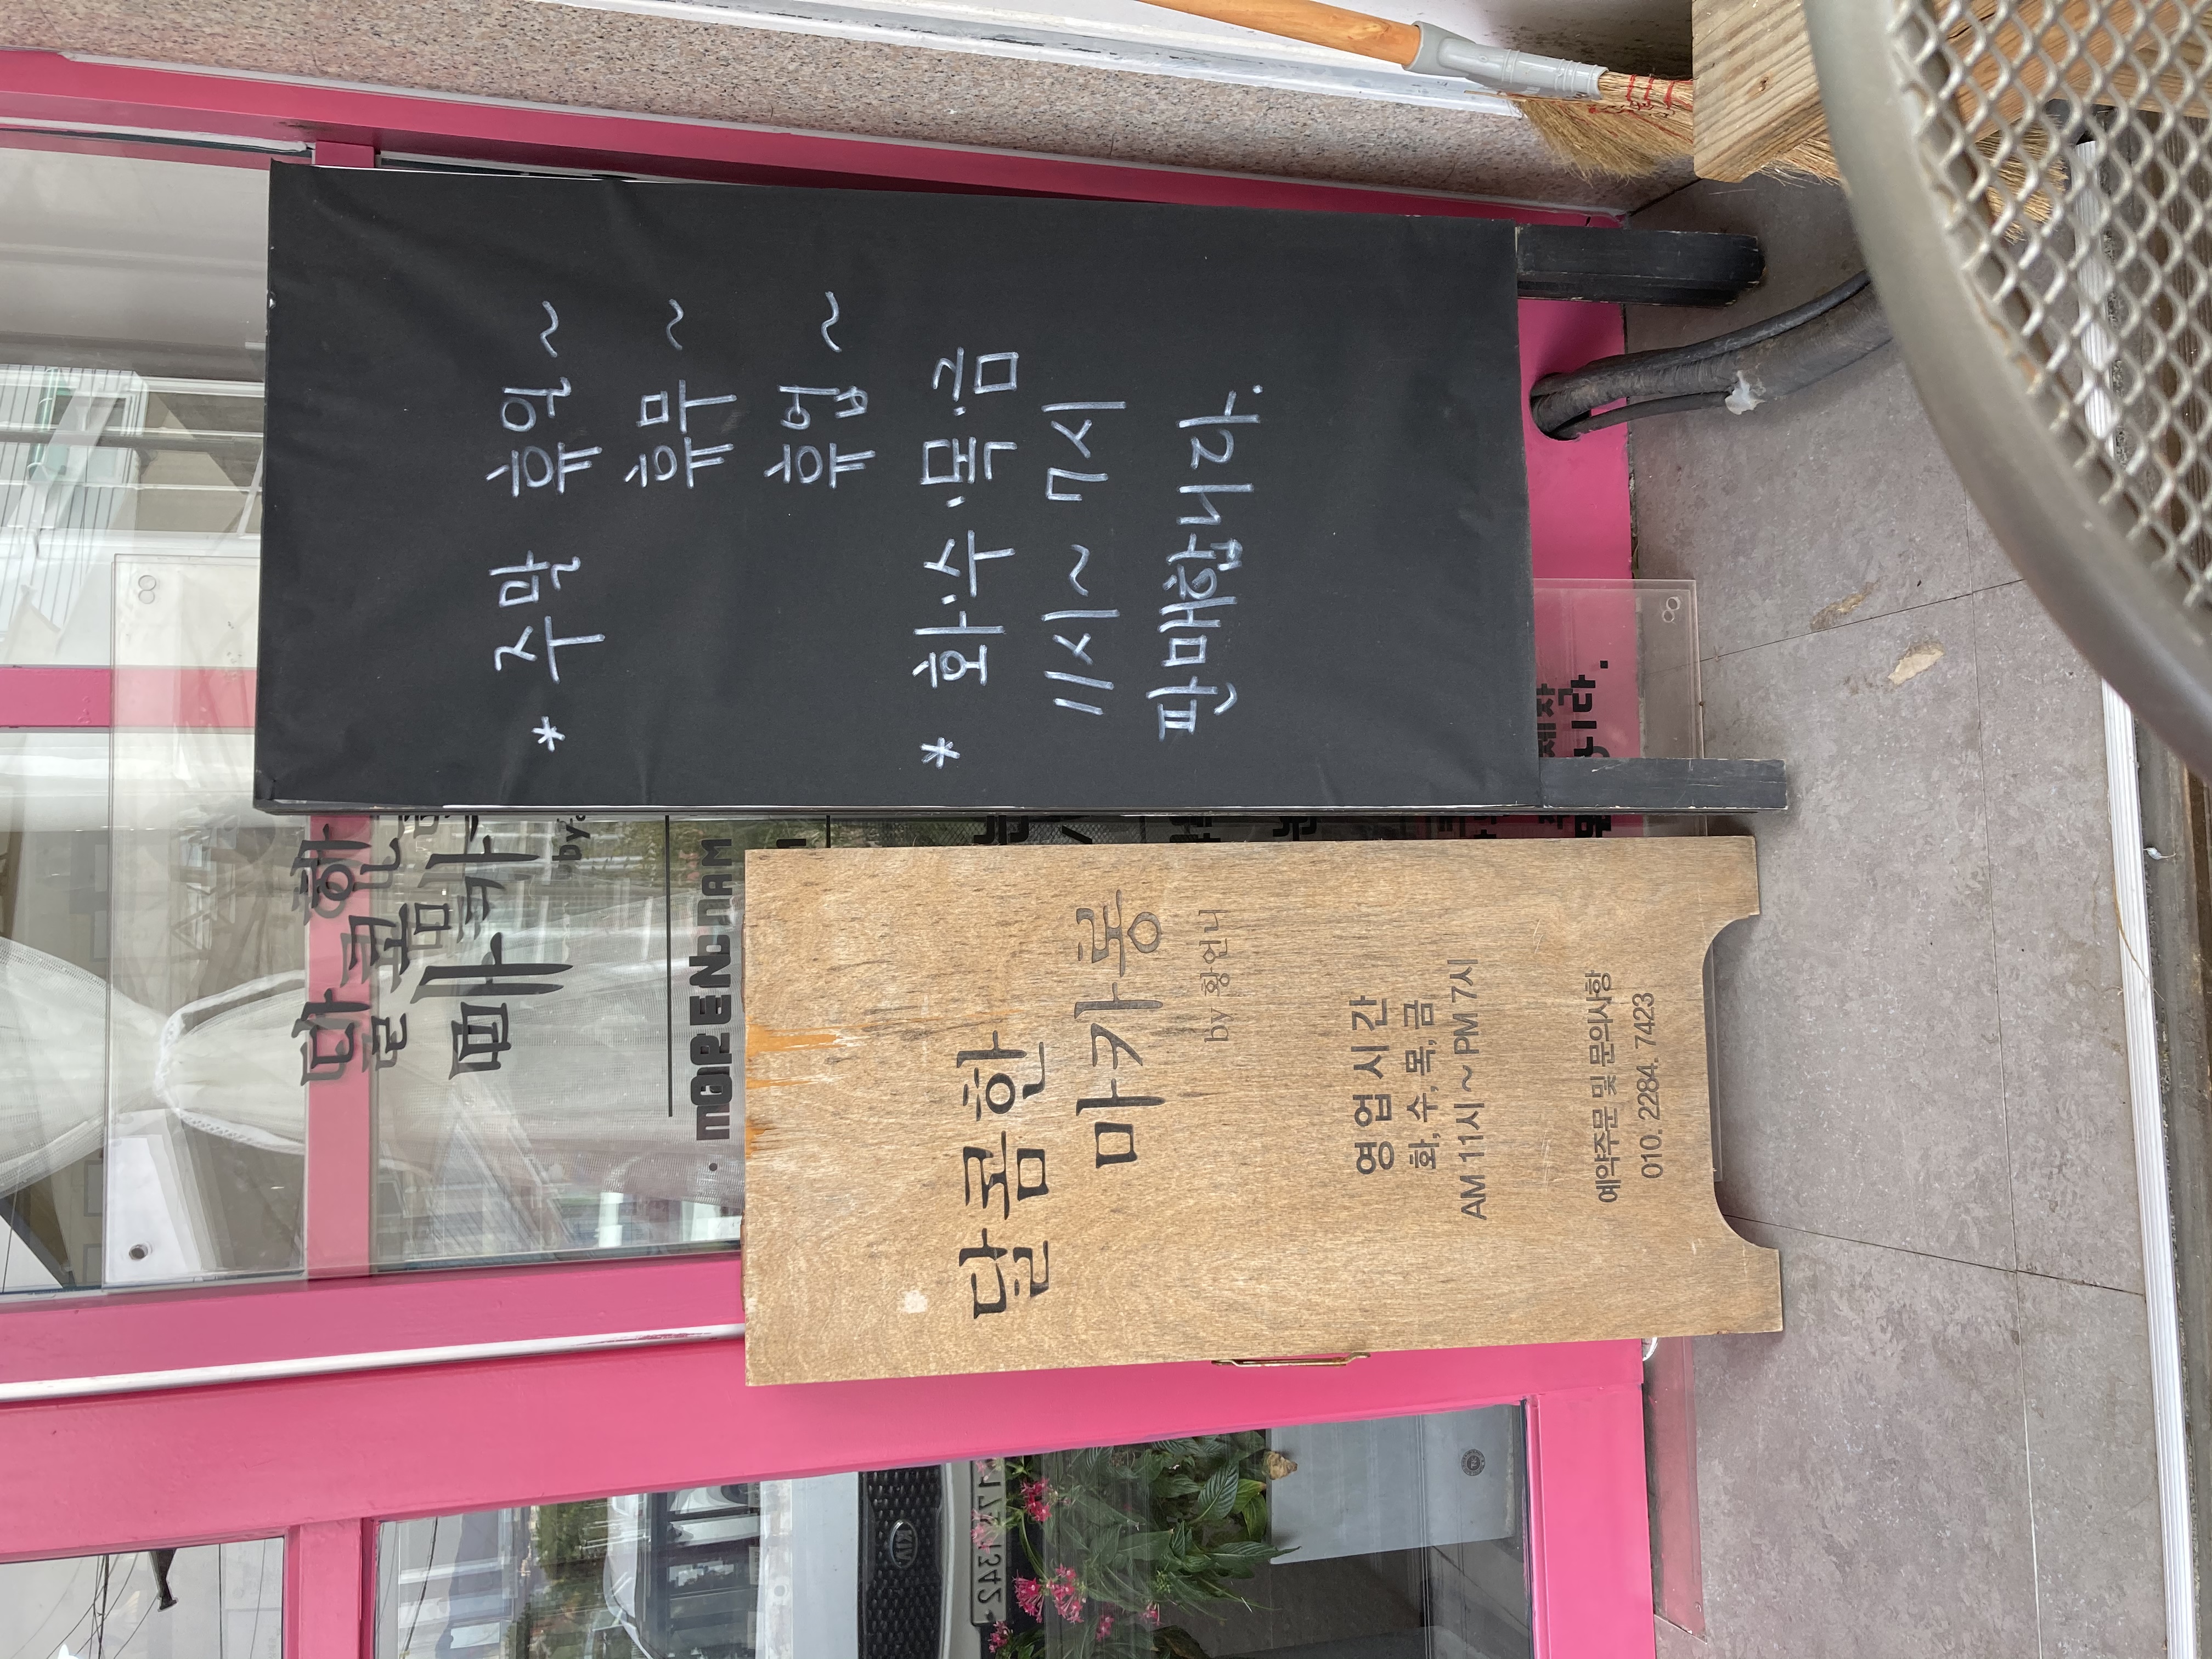 * 주말 휴일~
휴무~
휴업~
* 화·수·목·금
11시~7시
판매합니다.
달콤한
마카롱
by 황언니
영업시간
화, 수, 목, 금
AM 11시 ~ PM 7시
예약주문 및 문의사항
010. 2284. 7423
달콤한
마카
by
OPEN
KIA